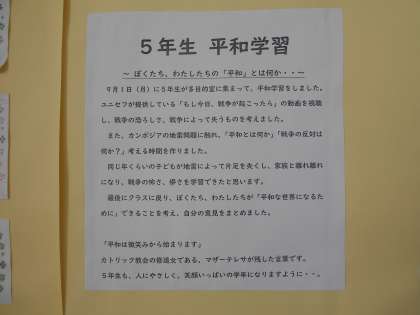 5年生 平和学習
~ ぼくたち、わたしたちの「平和」とは何か・・~
9月1日（月）に5年生が多目的室に集まって、平和学習をしました。
ユニセフが提供している「もし今日、戦争が起こったら」の動画を視聴
し、戦争の恐ろしさ、戦争によって失うものを考えました。
また、カンボジアの地雷問題に触れ、「平和とは何か」「戦争の反対は
何か？」考える時間を作りました。
同じ年くらいの子どもが地雷によって片足を失くし、家族と離れ離れ
になり、戦争の怖さ、儚さを学習できたと思います。
最後にクラスに戻り、ぼくたち、わたしたちが「平和な世界になるた
めに」できることを考え、自分の意見をまとめました。
「平和は微笑みから始まります」
カトリック教会の修道女である、マザーテレサが残した言葉です。
5年生も、人にやさしく、笑顔いっぱいの学年になりますように・・。